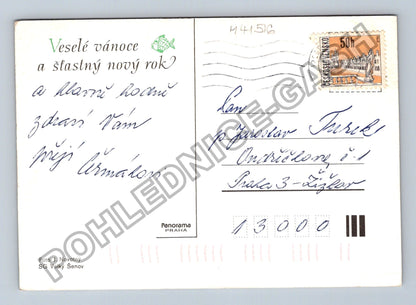 M41516
Veselé vánoce
a šťastný nový rok
a hlavně hodně
zdraví Vám
přejí Čermákovi
50h
ČESKOSLOVENSKO
Pan
p. Jaroslav Turek
Ondříčkova č. 1
Praha 3 - Žižkov
13000
Panorama
PRAHA
Foto J. Novotný
SG Velký Šenov
POHLEDNICE-GALIN